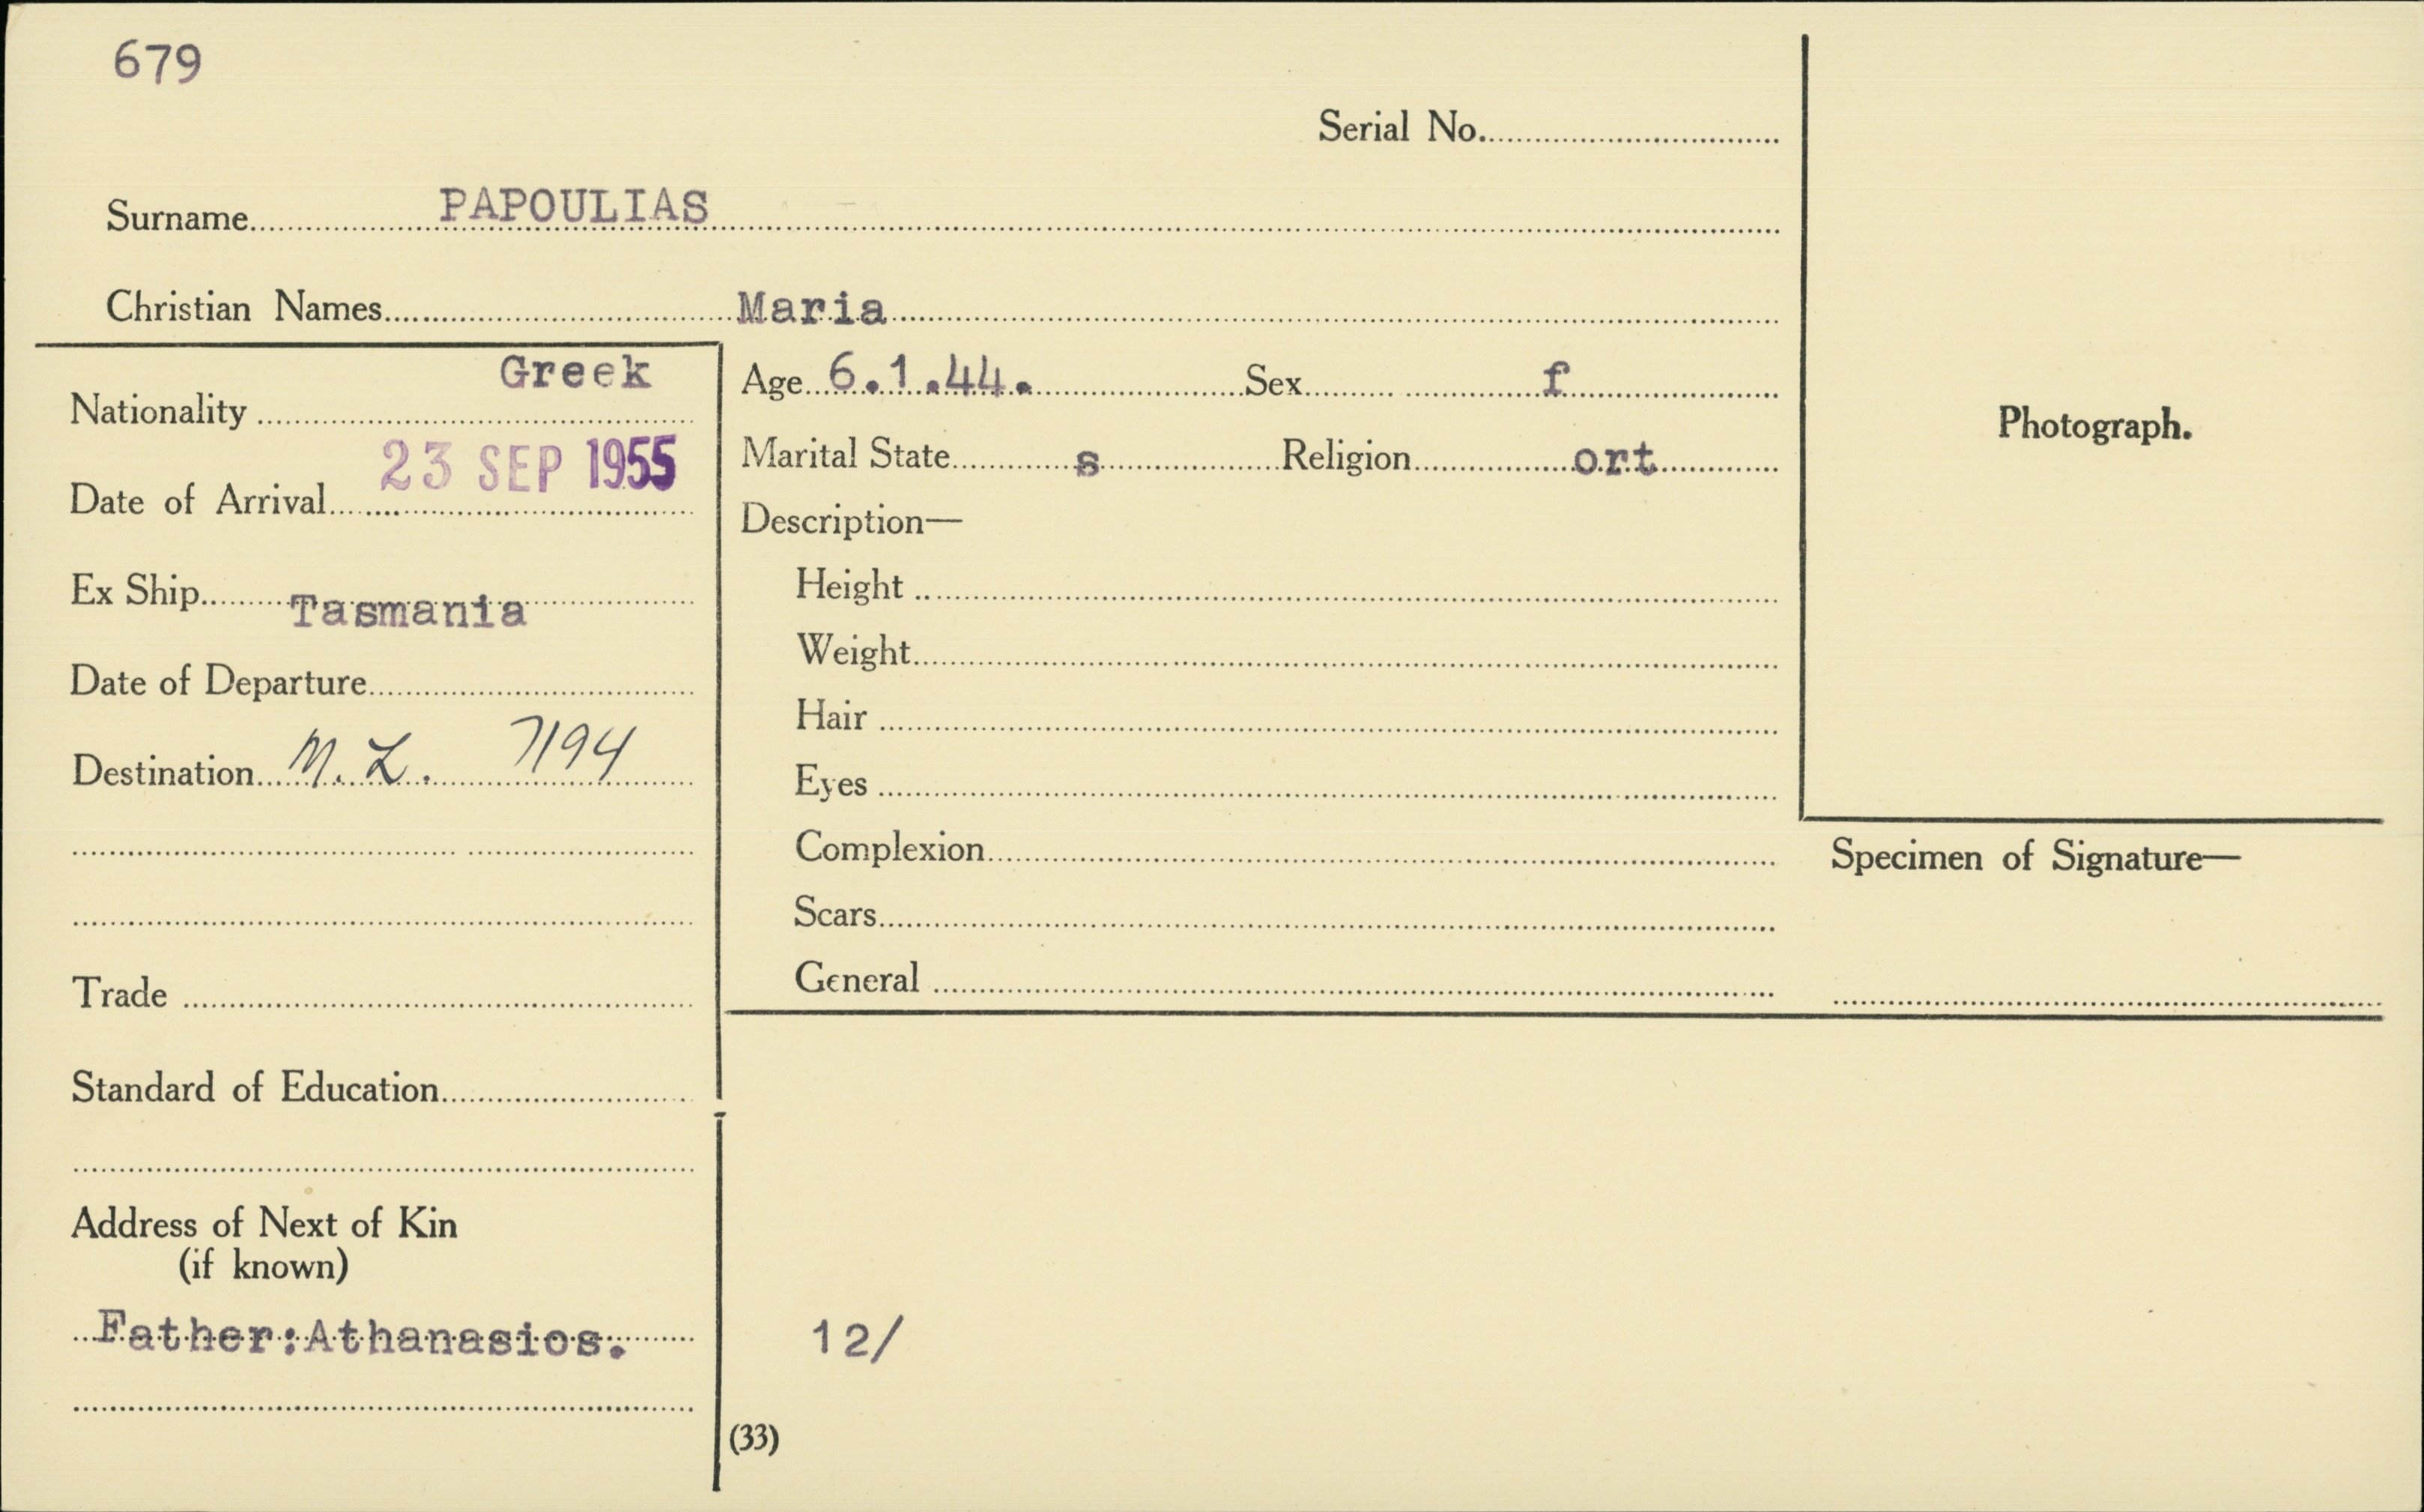 679
Serial No.
Surname PAPOULIAS
Christian Names Maria
Nationality Greek
Date of Arrival 23 SEP 1955
Ex Ship Tasmania
Date of Departure
Destination M. L. 7194
Trade
Standard of Education
Address of Next of Kin
(if known)
Father:Athanasios.
Age 6.1.44. Sex f
Marital State s Religion ort
Description—
Height
Weight
Hair
Eyes
Complexion
Scars
General
Photograph.
Specimen of Signature—
12/
(33)